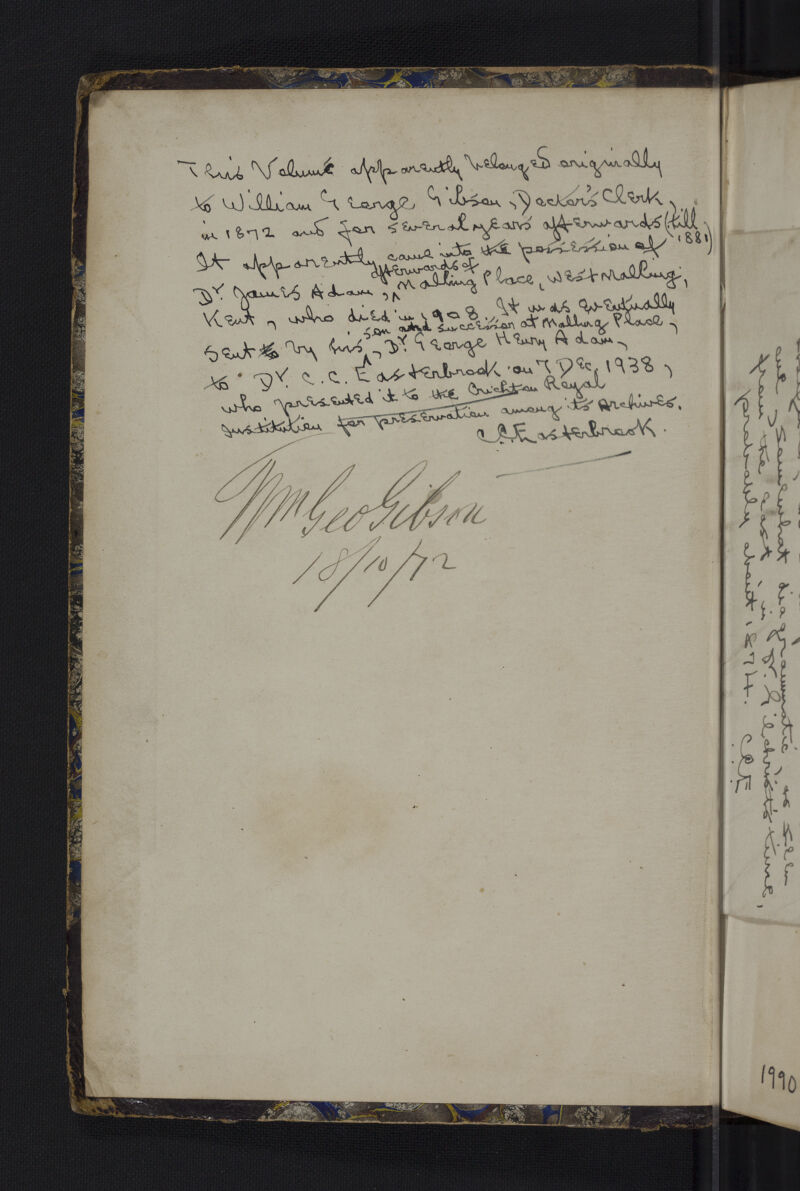 This Volume apparently belonged originally
to William George Gibson, Doctor's Clerk,
in 1872 and for several years afterwards (till 1881)
It apparently came into the possession of
afterwards of
Dr. James Adam, Malling Place, West Malling,
Kent, who died in 1908. It was eventually
son and successor at Malling Place,
sent to by his, Dr. George Henry Adam,
to Dr. C. C. Easterbrook on 7 Dec. 1938,
who presented it to the Crichton Royal
Institution for preservation among its archives.
C.C. Easterbrook.
Wm Geo Gibson
18/10/72
and somewhat diagrammatic, as seen
from the east, in Dr. Gilchrist's time,
probably about 1874. CCE
1990